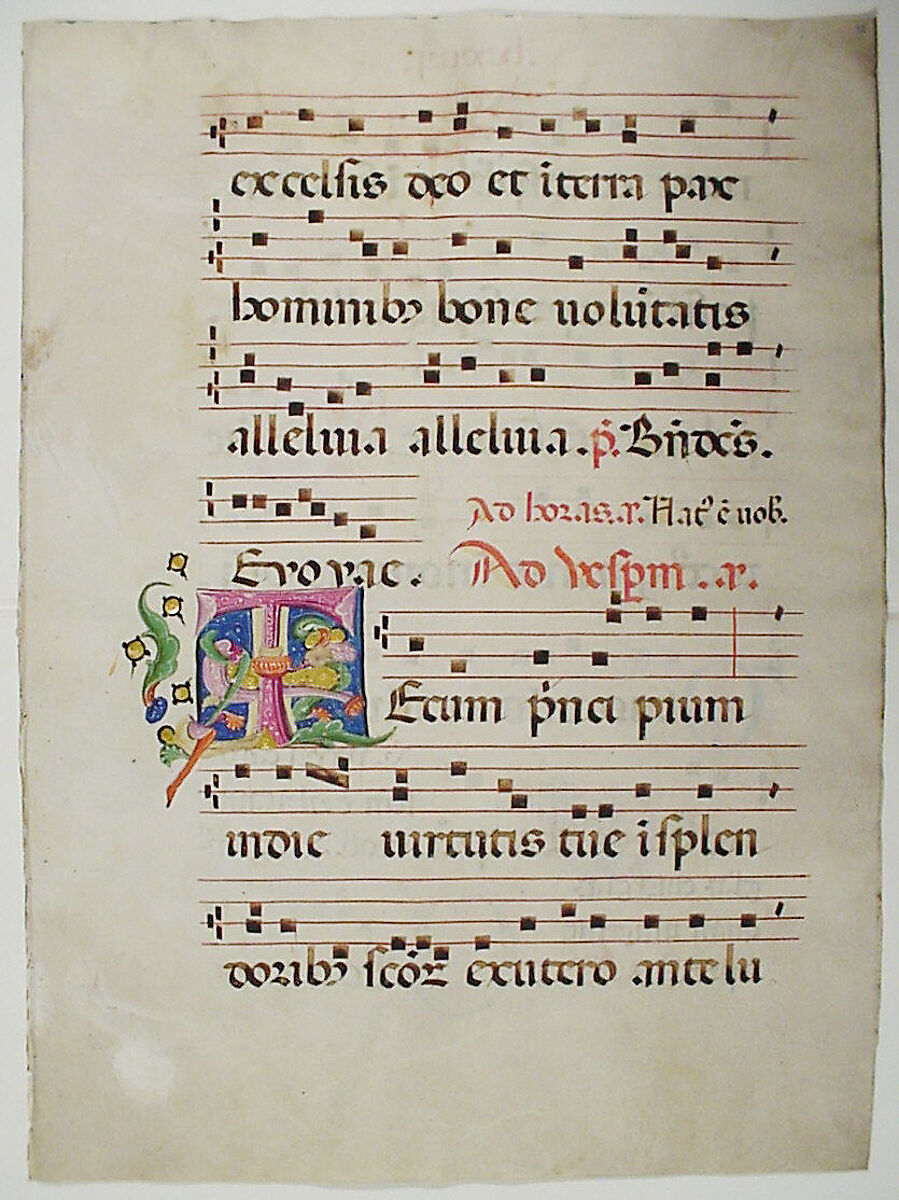 excelsis deo et īterra pax
hominibꝰ bone uolūtatis
alleluia alleluia. p̄. Bn̄dc̄s.
Ad horas. a. Natꝰ ē uob̄.
Evovae. Ad vesp̄m. a.
TEcum p̄ncipium
indie uirtutis tue isplen
doribꝰ scōꝝ exutero antelu